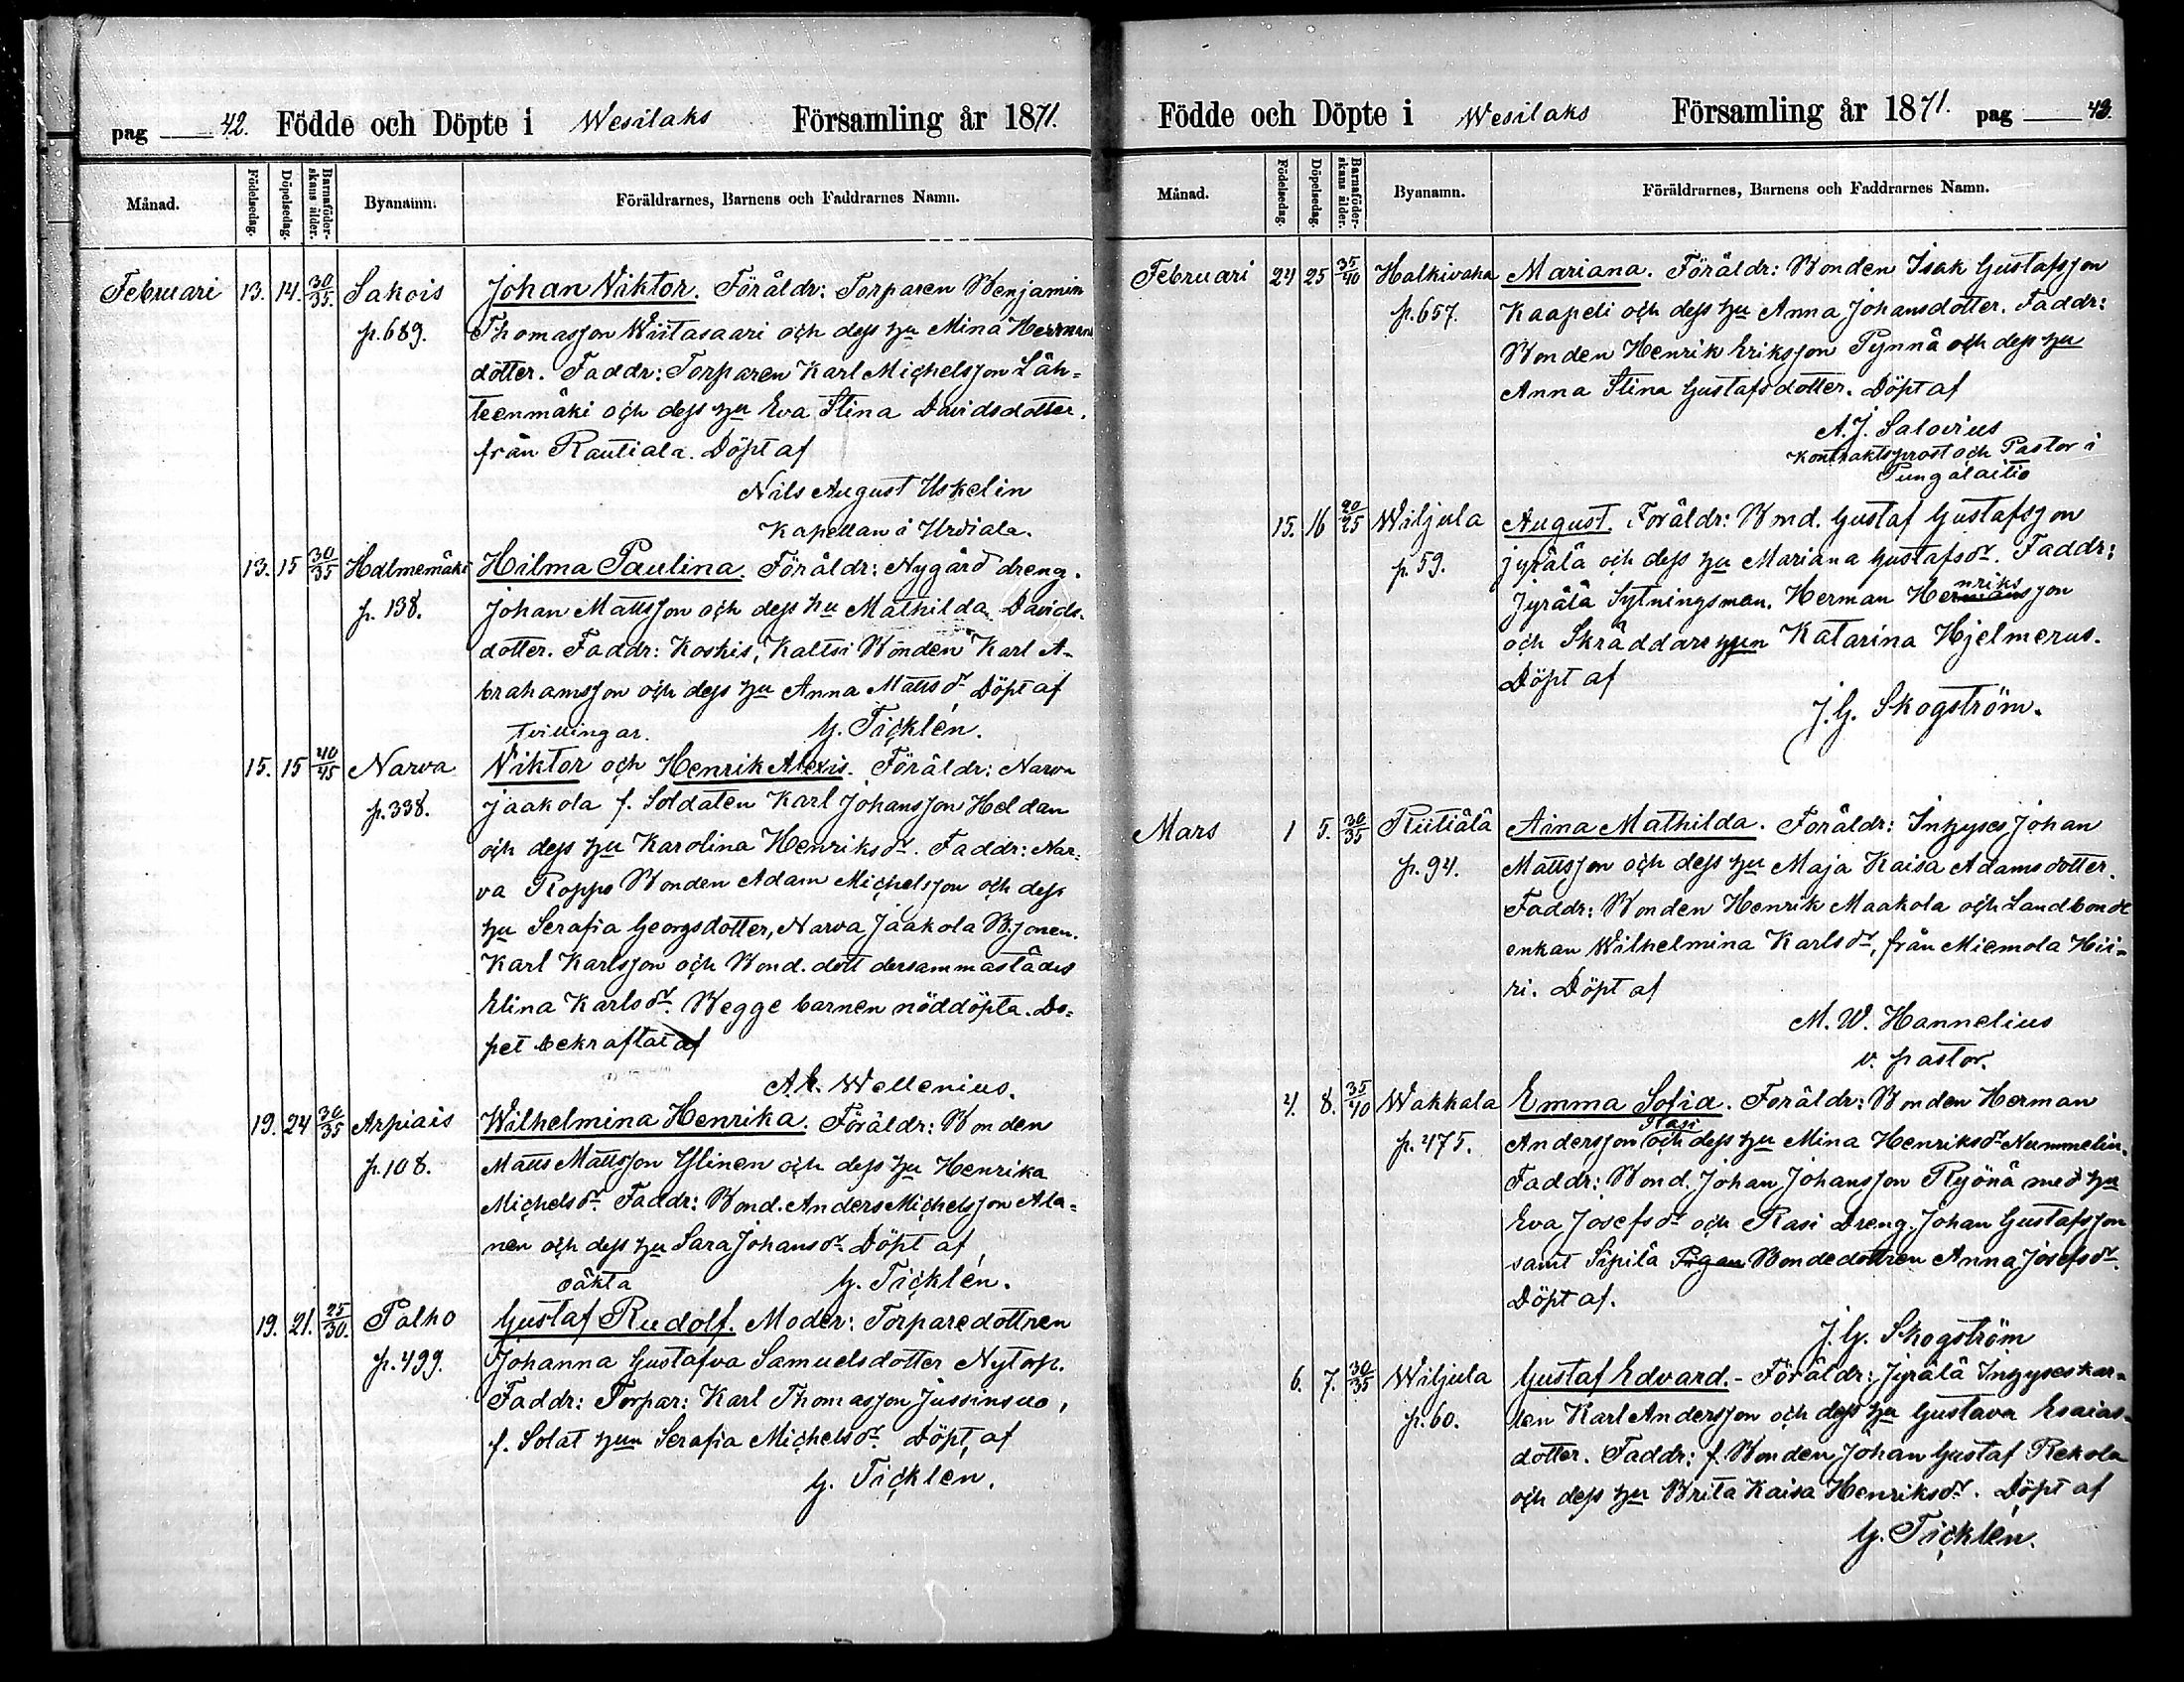 pag 42. Födde och Döpte i Wesilaks Församling år 1871.
Månad. Födelsedag. Döpelsedag. Barnaföderskans ålder. Byanamn. Föräldrarnes, Barnens och Faddrarnes Namn.
Februari 13. 14. 30/35. Sakois Johan Viktor. Föräldr: Torparen Benjamin
p. 689. Thomasson Wiitasaari och dess hu Mina Hermans
dotter. Faddr: Torparen Karl Michelsson Läh=
teenmäki och dess hu Eva Stina Davidsdotter.
från Rautiala. Döpt af
Nils August Uskelin
Kapellan i Urdiala.
13. 15 30/35 Holmemäki Hilma Paulina. Föräldr: Nygård dreng.
p. 138. Johan Mattsson och dess hu Mathilda Davids-
dotter. Faddr: Koskis, Kaltsi Bonden Karl A-
brahamsson och dess hu Anna Mattsdr Döpt af
tvillingar. G. Ticklén.
15. 15 40/45 Narva Viktor och Henrik Alexis. Föräldr: Narva
p. 338. Jaakola f. Soldaten Karl Johansson Heldan
och dess hu Karolina Henriksdr. Faddr: Nar=
va Roppo Bonden Adam Michelsson och dess
hu Serafia Georgsdotter, Narva Jaakola B. sonen.
Karl Karlsson och Bond. dott dersammastädes
Elina Karlsdr. Begge barnen nöddöpta. Do=
pet bekraftat af
A. E. Wellenius.
19. 24 30/35 Arpiais Wilhelmina Henrika. Föräldr: Bonden
p. 108. Matts Mattsson Ylinen och dess hu Henrika
Michelsdr. Faddr: Bond. Anders Michelsson Ala=
nen och dess hu Sara Johansdr. Döpt af
oäkta G. Ticklén.
19. 21. 25/30. Palho Gustaf Rudolf. Moder: Torparedottren
p. 499. Johanna Gustafva Samuelsdotter Nytorp.
Faddr: Torpar: Karl Thomasson Jussinsuo,
f. Solat hun Serafia Michelsdr. Döpt af
G. Ticklén.
Födde och Döpte i Wesilaks Församling år 1871. pag 43.
Månad. Födelsedag. Döpelsedag. Barnaföderskans ålder. Byanamn. Föräldrarnes, Barnens och Faddrarnes Namn.
Februari 24 25 35/40 Halkivaha Mariana. Föräldr: Bonden Isak Gustafsson
p. 657. Kaapeli och dess hu Anna Johansdotter. Faddr:
Bonden Henrik Eriksson Pynnä och dess hu
Anna Stina Gustafsdotter. Döpt af
A. J. Salovius
Kontraktsprost och Pastor i
Pungalaitio
15. 16 20/25 Wiljula August. Föräldr: Bond. Gustaf Gustafsson
p. 59. Jyrälä och dess hu Mariana Gustafsdr. Faddr:
nriks
Jyrälä Sytningsman. Herman Hermansson
och Skräddare hun Katarina Hjelmerus.
Döpt af
J. G. Skogström.
Mars 1 5. 30/35 Riitiälä Aina Mathilda. Föräldr: Inhyses Johan
p. 94. Mattsson och dess hu Maja Kaisa Adamsdotter.
Faddr: Bonden Henrik Maakola och Landbonde
enkan Wilhelmina Karlsdr, från Miemola Hii-
ri. Döpt af
M. W. Hannelius
v. pastor.
4. 8. 35/40 Wakkala Emma Sofia. Föräldr: Bonden Herman
Rasi
p. 475. Andersson och dess hu Mina Henriksdr Nummelin.
Faddr: Bond. Johan Johansson Ryönä med hu
Eva Josefsdr och Rasi Dreng. Johan Gustafsson
samt Sipilä Pigan Bondedottren Anna Josefsdr.
Döpt af.
J. G. Skogström
6. 7. 30/35 Wiljula Gustaf Edvard. - Föräldr: Jyrälä Inhyseskar-
p. 60. len Karl Andersson och dess hu Gustava Esaias-
dotter. Faddr: f. Bonden Johan Gustaf Rekola
och dess hu Brita Kaisa Henriksdr. Döpt af
G. Ticklén.